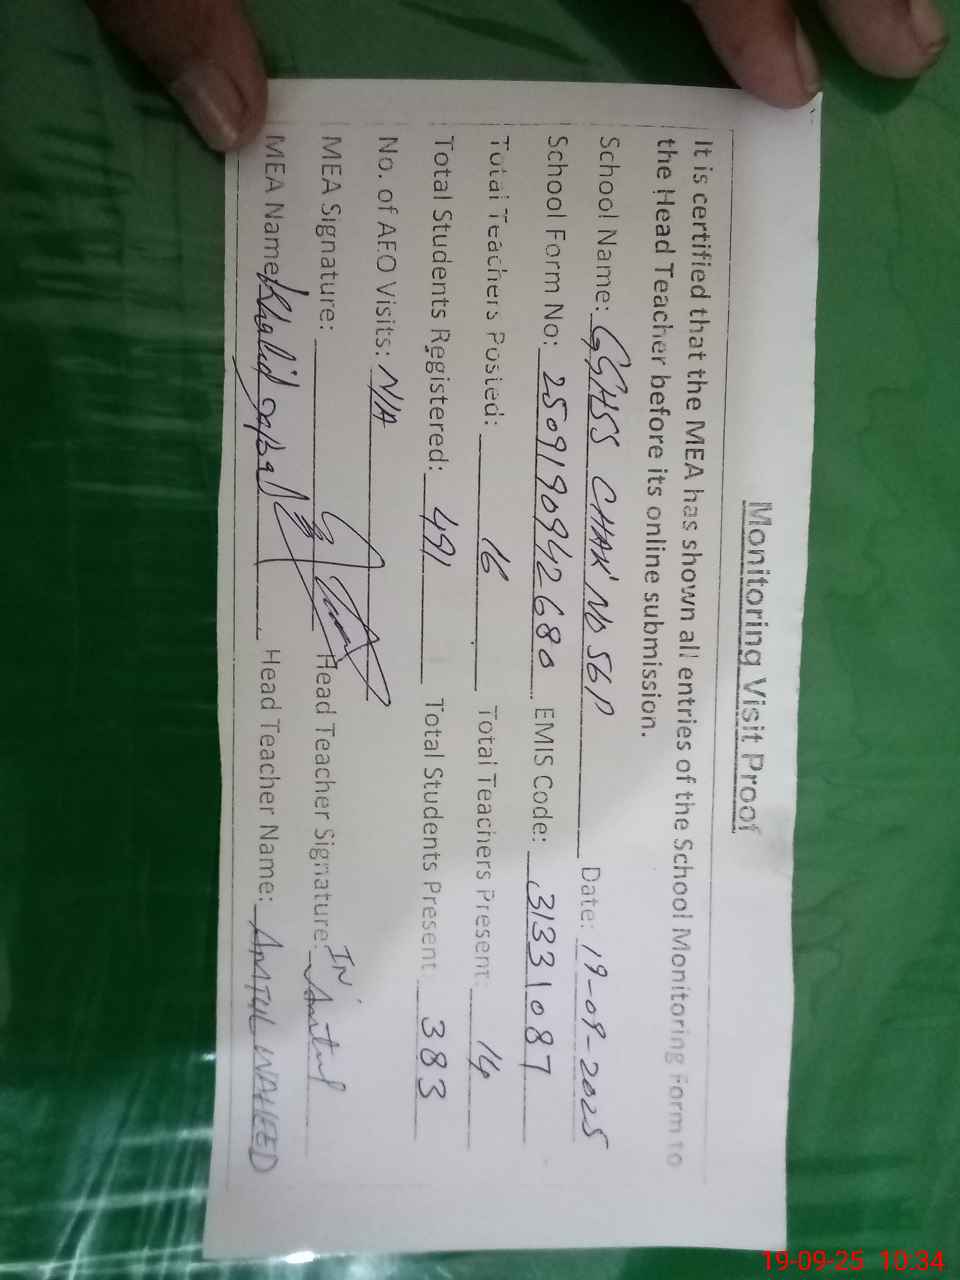 Monitoring Visit Proof
It is certified that the MEA has shown all entries of the School Monitoring Form to
the Head Teacher before its online submission.
School Name: GGHSS CHAK NO 56P Date: 19-09-2025
School Form No: 250919094268 EMIS Code: 31331087
Total Teachers Posted: 16 Total Teachers Present: 14
Total Students Registered: 491 Total Students Present: 383
No. of AEO Visits: N/A
MEA Signature: Head Teacher Signature: Amtul
MEA Name: Khalid Iqbal Head Teacher Name: AMTUL WAHEED
19-09-25 10:34